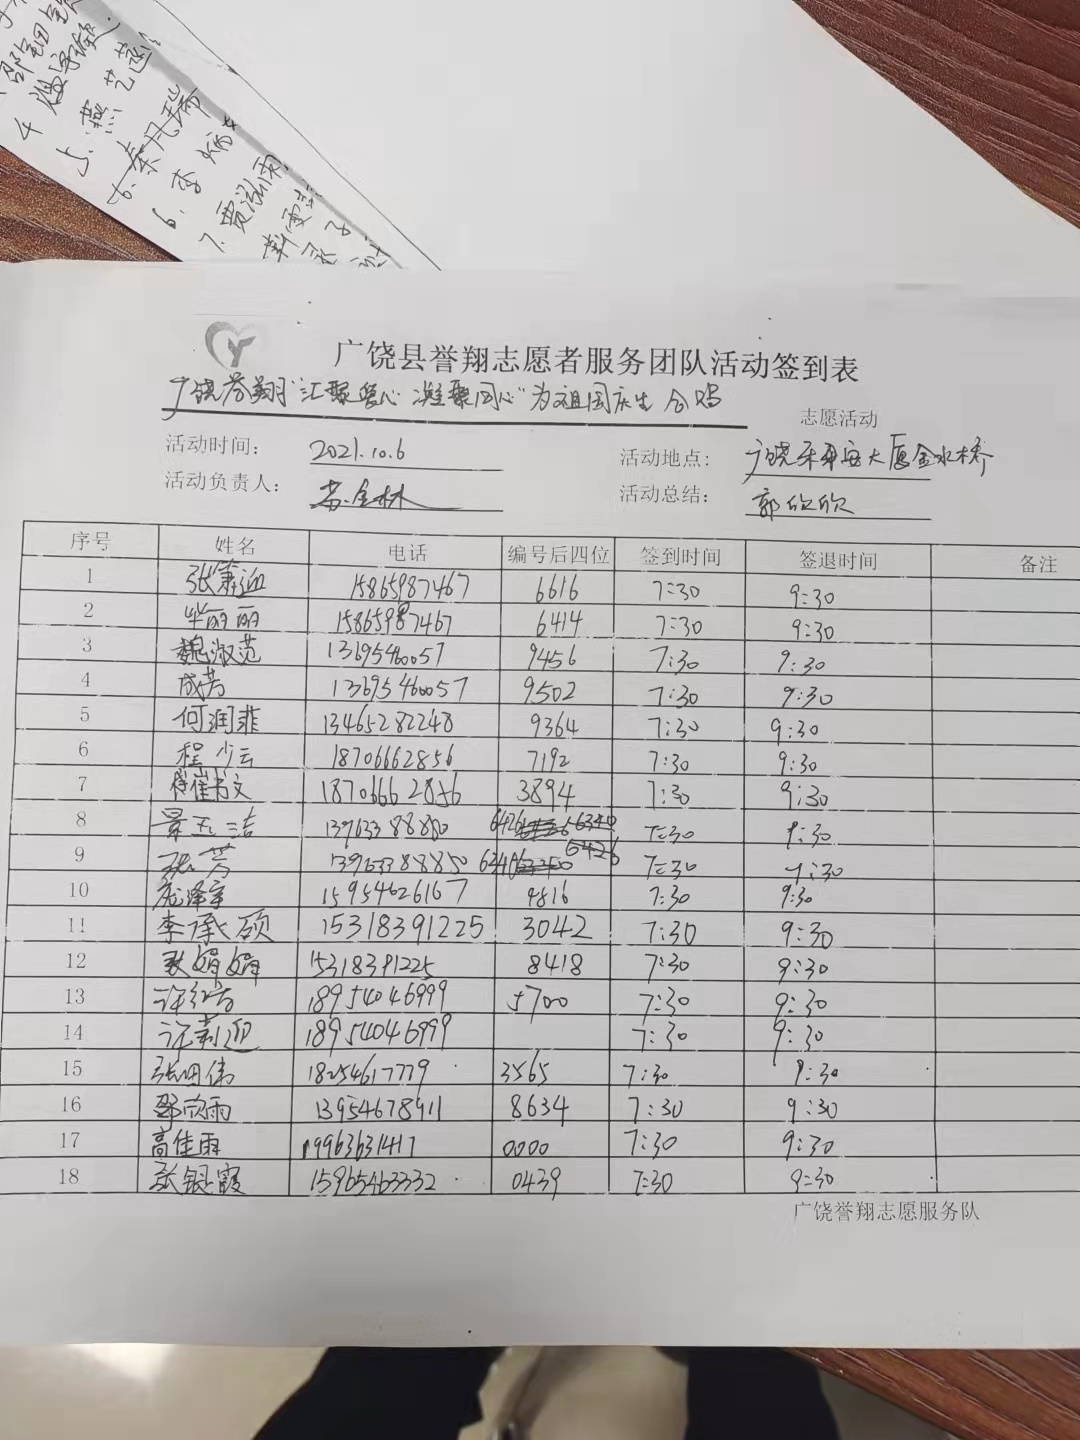 4
5. 燕艺菡
6. 秦凡瑞
6. 李炳
7. 贾泓雨
广饶县誉翔志愿者服务团队活动签到表
广饶誉翔"汇聚爱心 凝聚同心"为祖国庆生合唱 志愿活动
活动时间: 2021.10.6 活动地点: 广饶乐安大厦金水桥
活动负责人: 活动总结: 郭欣欣
序号 姓名 电话 编号后四位 签到时间 签退时间 备注
1 张萧迪 15865987467 6616 7:30 9:30
2 毕丽丽 15865987467 6414 7:30 9:30
3 魏淑范 13695460057 9456 7:30 9:30
4 成芳 13695460057 9502 7:30 9:30
5 何润菲 13465282248 9364 7:30 9:30
6 程少云 18706662856 7192 7:30 9:30
7 崔书文 18706662856 3894 7:30 9:30
8 景玉洁 13963388880 7:30 9:30
9 张芳 13963388850 7:30 9:30
10 庞泽宇 15954626167 4816 7:30 9:30
11 李承硕 15318391225 3042 7:30 9:30
12 耿娟娟 15318391225 8418 7:30 9:30
13 许红芳 18954046999 5700 7:30 9:30
14 许莉迎 18954046999 7:30 9:30
15 张田伟 18254617779 3565 7:30 9:30
16 邵欣雨 13954678911 8634 7:30 9:30
17 高佳雨 19963631417 0000 7:30 9:30
18 张银霞 15965463332 0439 7:30 9:30
广饶誉翔志愿服务队